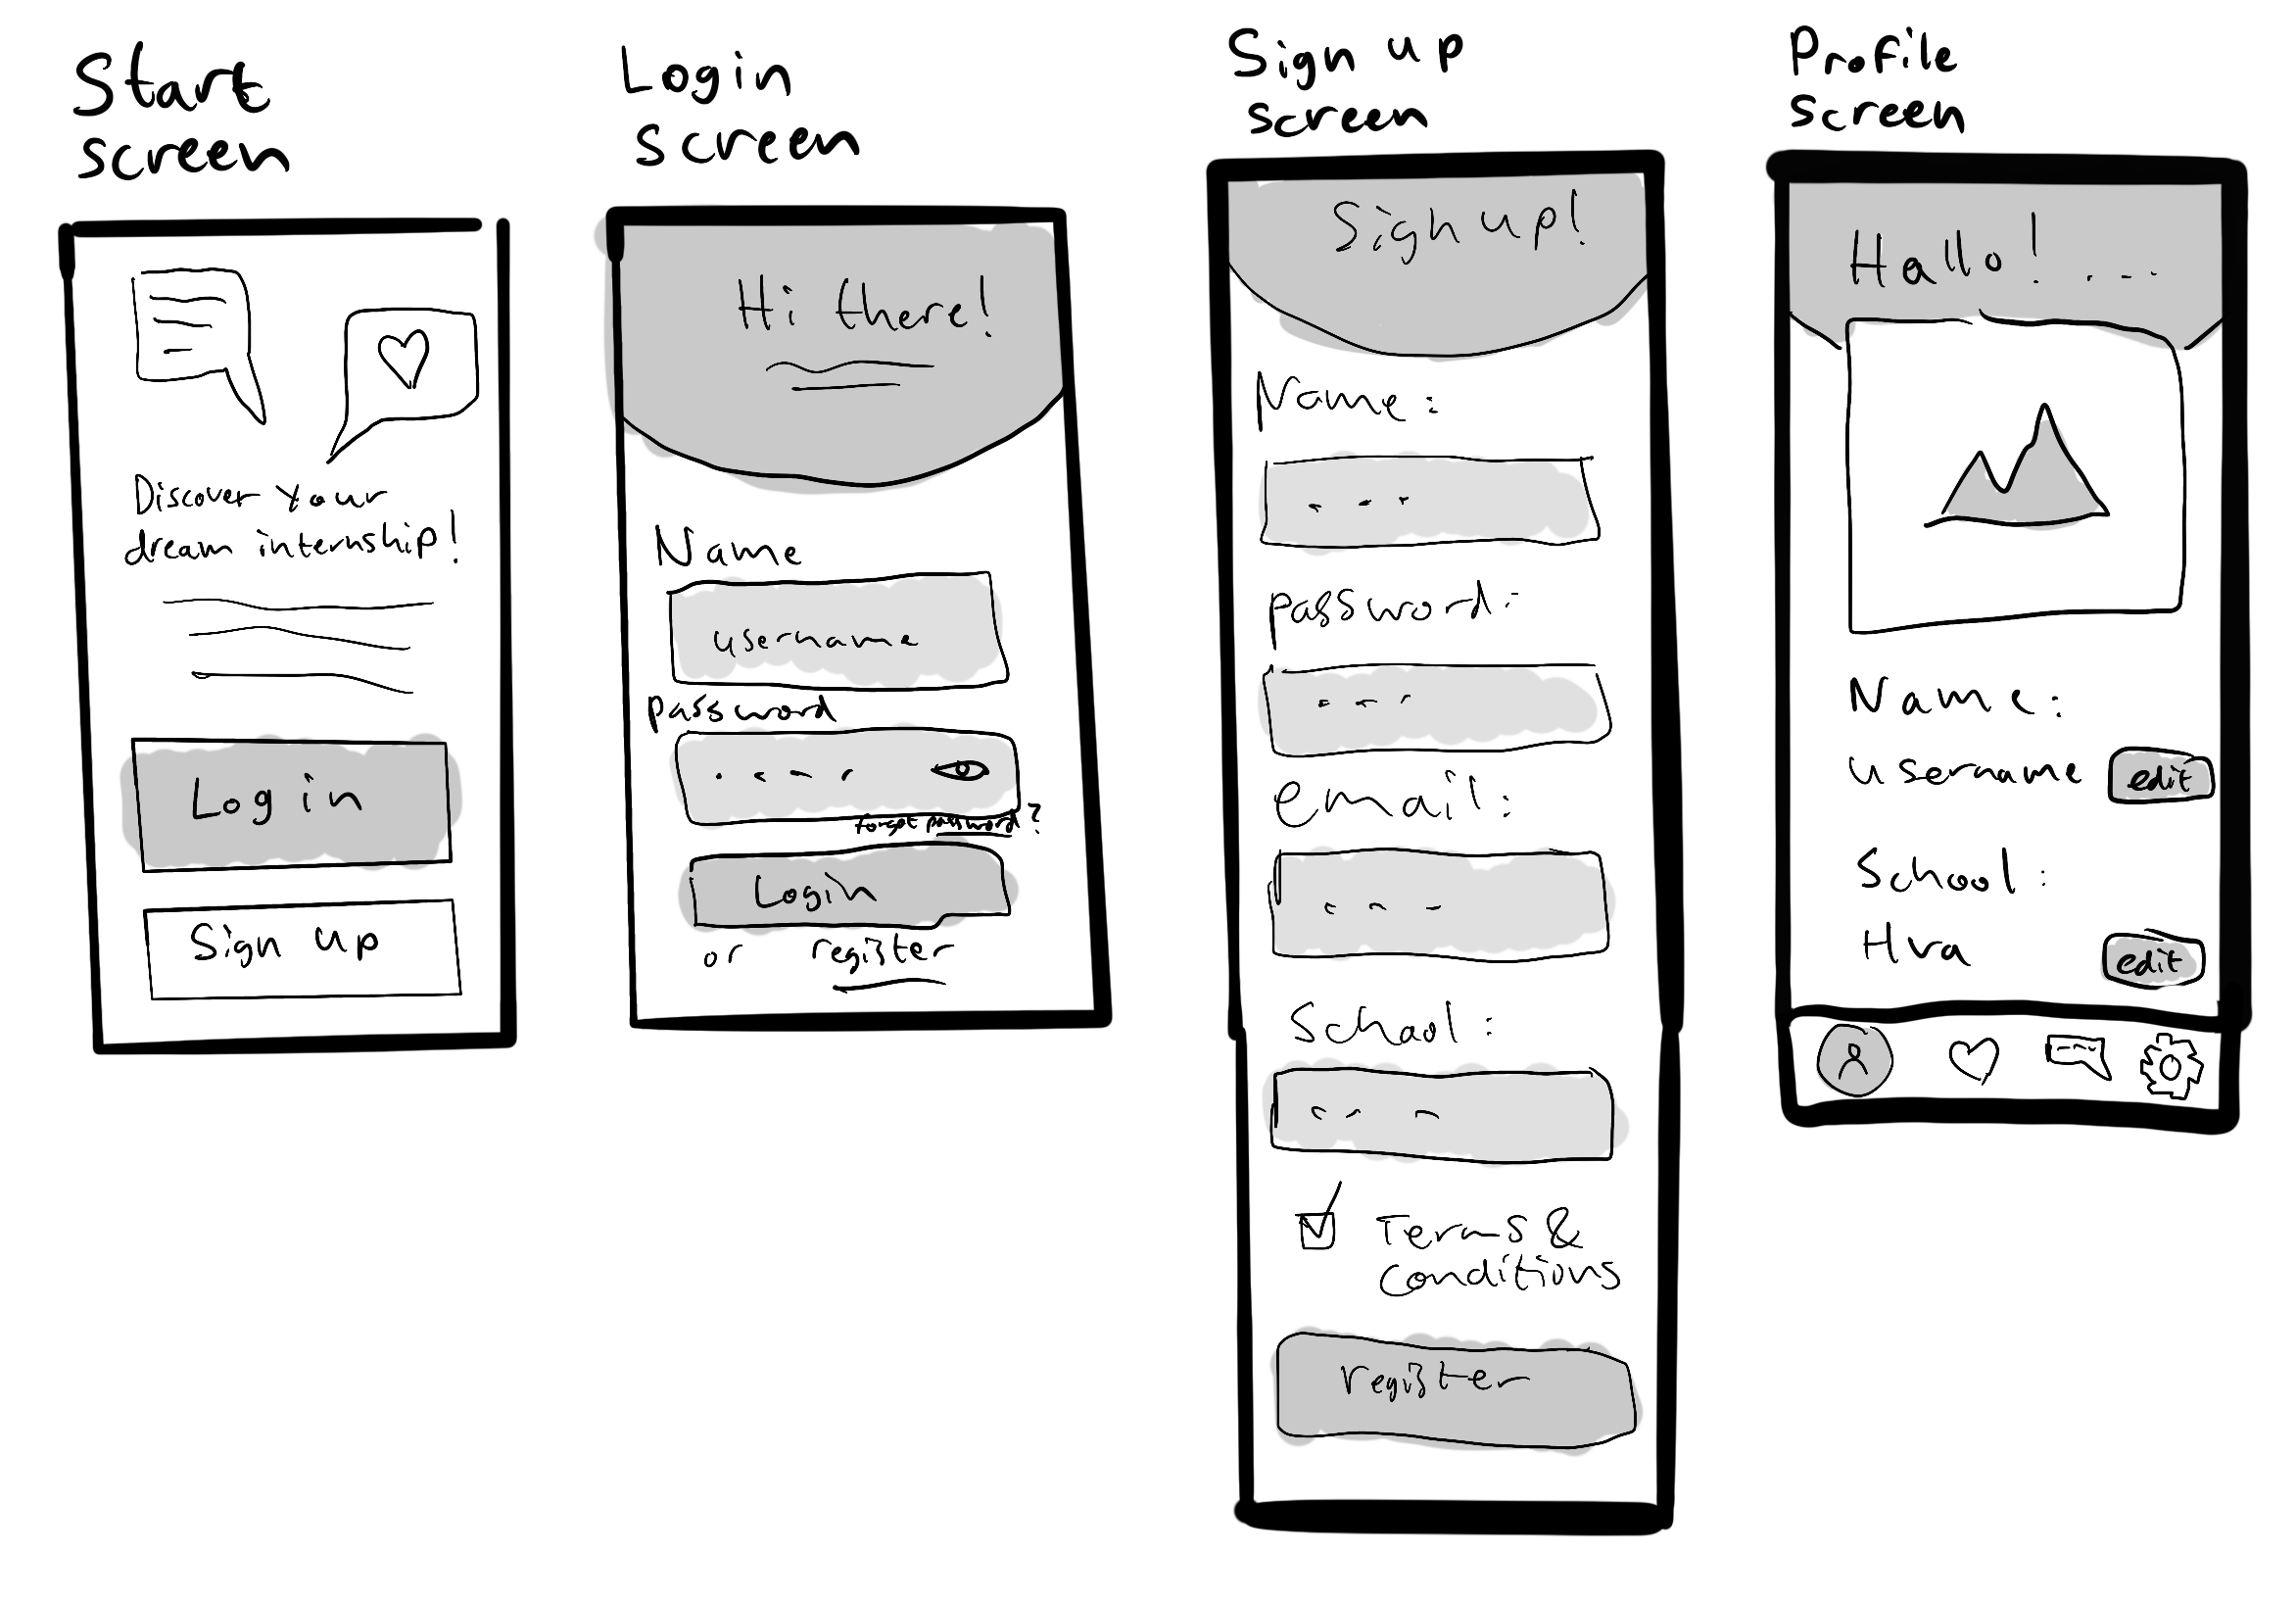 Start
screen
Discover Your
dream internship!
Log in
Sign up
Login
screen
Hi there!
Name
username
password
forgot password?
Login
or register
Sign up
screen
Sign up!
Name:
password:
email:
School:
Terms &
conditions
register
Profile
screen
Hallo! ...
Name:
username edit
School:
Hva edit